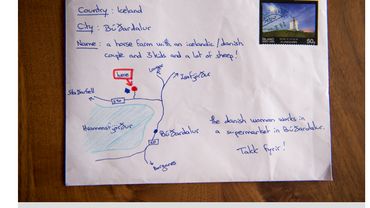 Country : Iceland
City : Búðardalur
Name : a horse farm with an icelandic/danish
couple and 3 kids and a lot of sheep!
ÍSLAND
50g
here
Ísafjörður
Hvammsfjörður
Búðardalur
the danish woman works in
a supermarket in Búðardalur.
Takk fyrir!